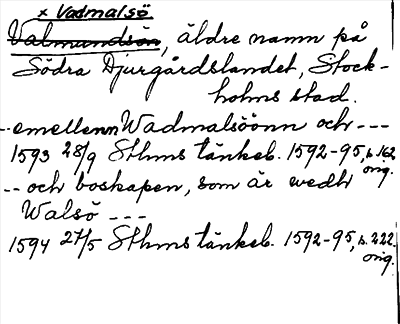 x Vadmalsö
Valmundsön, äldre namn på
Södra Djurgårdslandet, Stock-
holms stad.
--emellenn Wadmalsöönn och ---
1593 28/9 Sthms tänkeb. 1592-95, s. 162
orig.
-- och boskapen, som är wedh
Walsö ---
1594 27/5 Sthms tänkeb. 1592-95, s. 222.
orig.